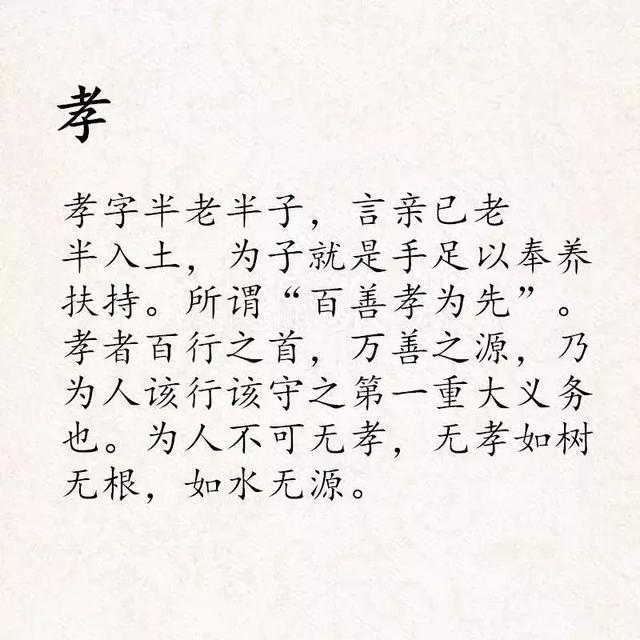 孝
孝字半老半子，言亲已老
半入土，为子就是手足以奉养
扶持。所谓“百善孝为先”。
孝者百行之首，万善之源，乃
为人该行该守之第一重大义务
也。为人不可无孝，无孝如树
无根，如水无源。